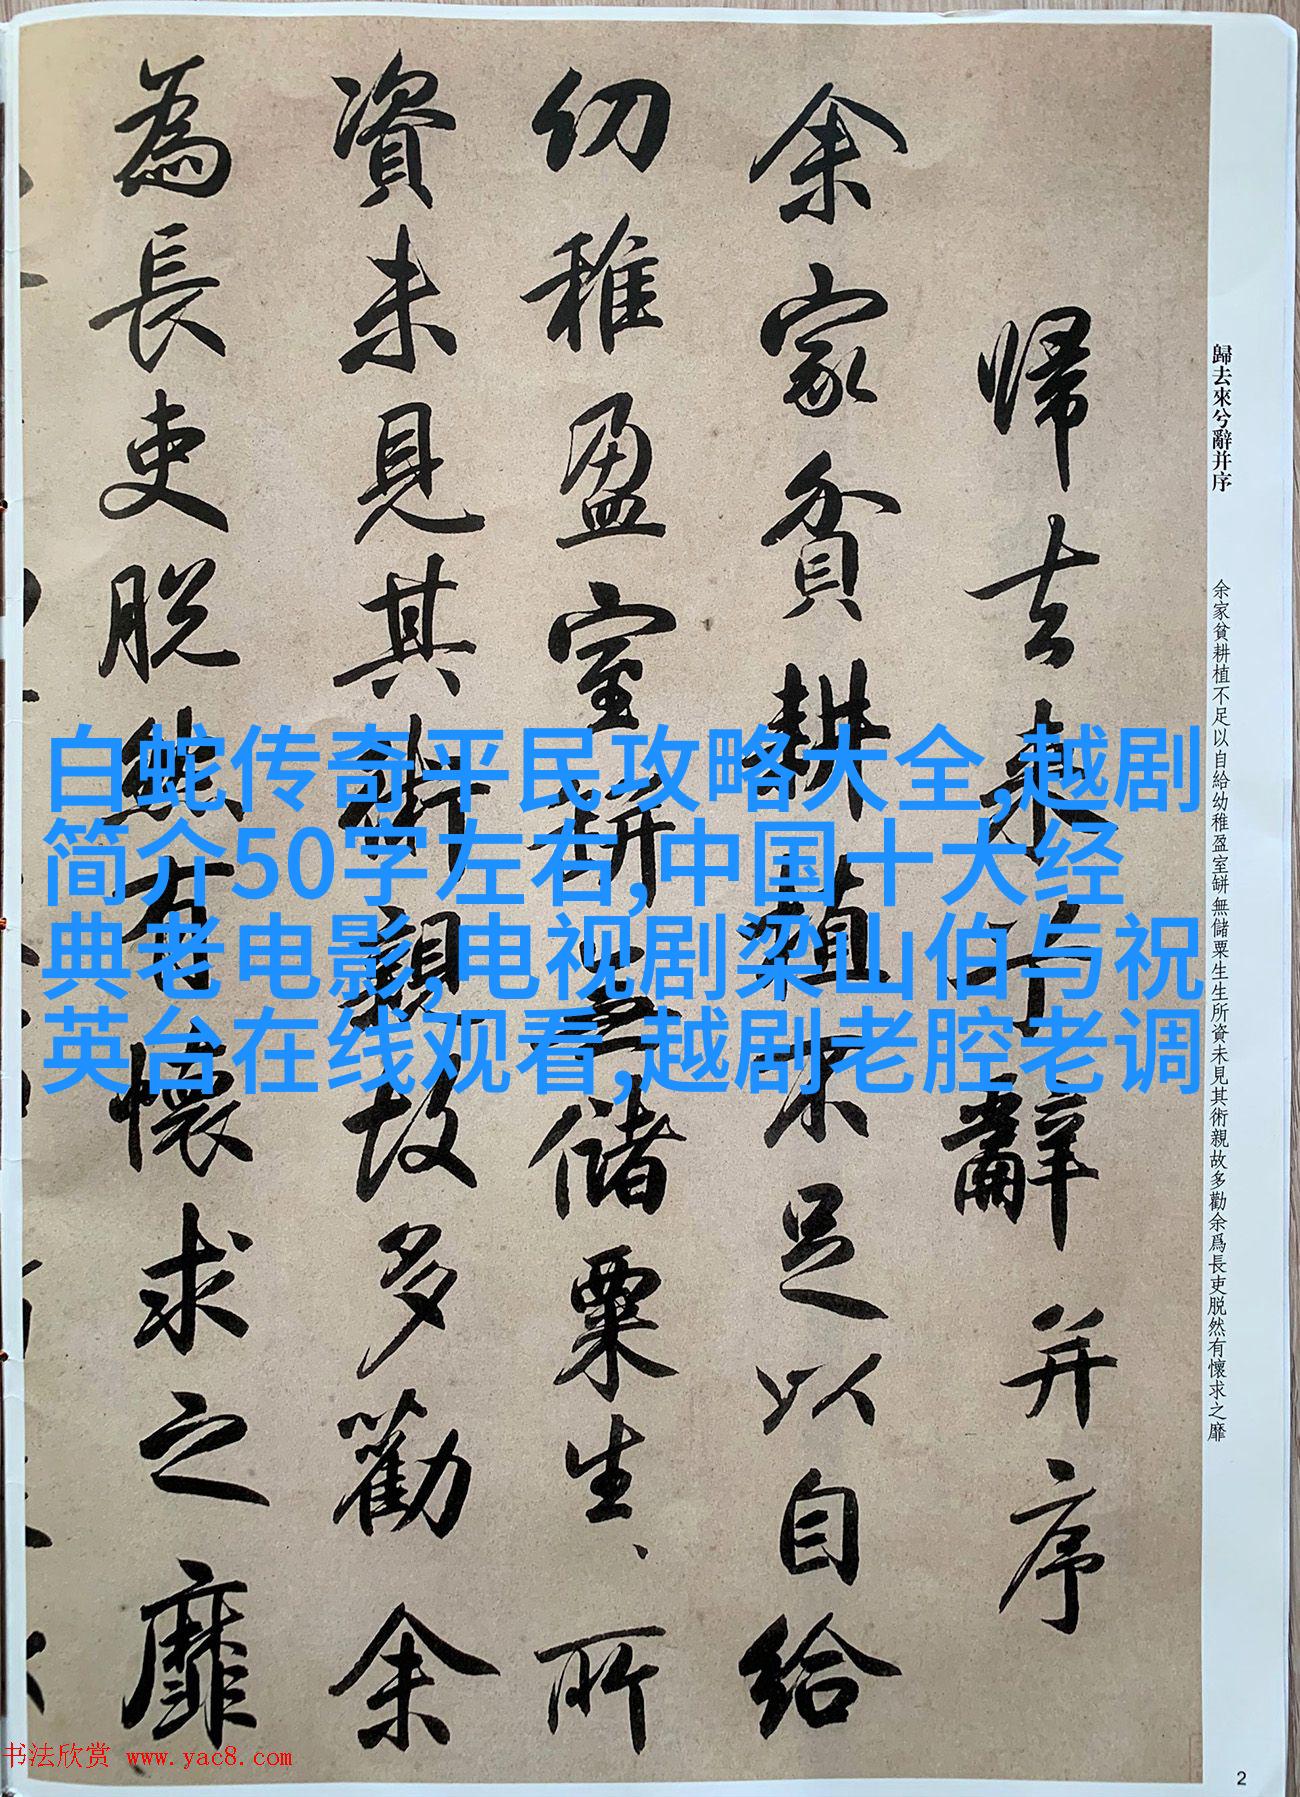 歸去來兮辭并序
余家貧耕植不足以自給幼稚盈室缾無儲粟生生所資未見其術親故多勸余爲長吏脱然有懷求之靡
歸去來兮辭并序
余家貧耕植不足以自給
幼稚盈室缾無儲粟生、所
資未見其術親故多勸余
為長吏脱然有懷求之靡
白蛇传奇平民攻略大全,越剧
简介50字左右,中国十大经
典老电影,电视剧梁山伯与祝
英台在线观看,越剧老腔老调
书法欣赏 www.yac8.com
2